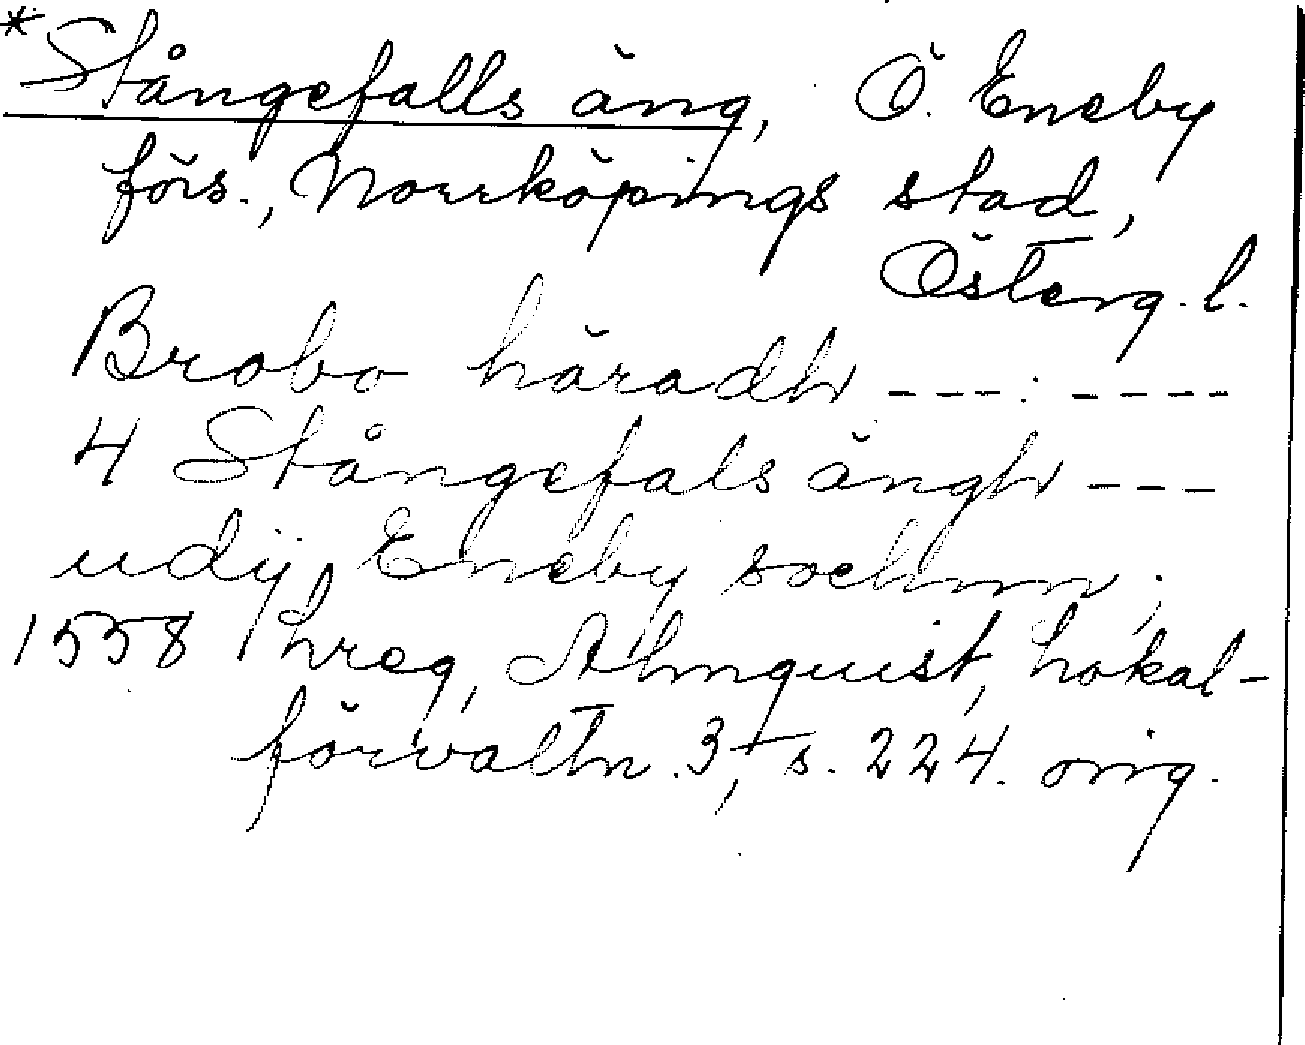 *Stångefalls äng, Ö. Eneby
förs., Norrköpings stad,
Österg. l.
Brobo häradh ---:----
4 Stångefals ängh ---
udij Eneby sochnn;
1558 hreg, Almquist, Lokal-
förvaltn. 3, s. 224. orig.